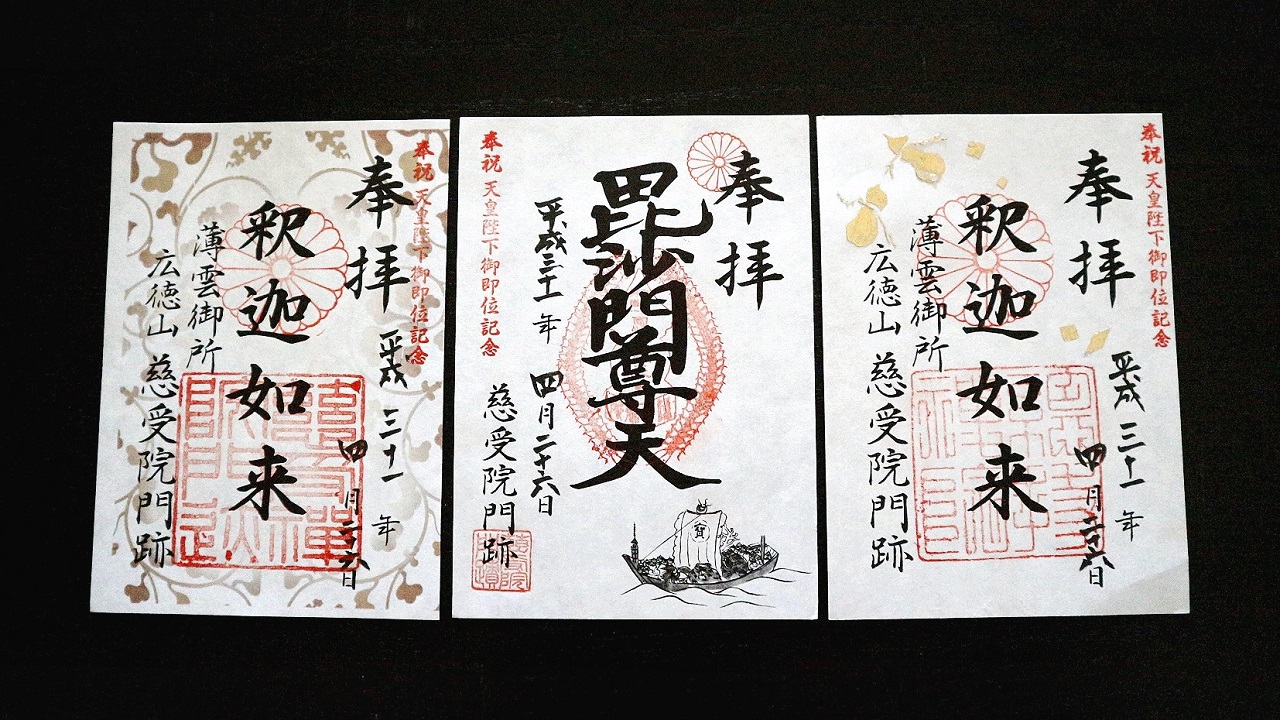 奉祝 天皇陛下御即位記念
奉拝
平成三十一年
四月二十六日
釈迦如来
薄雲御所
広徳山 慈受院門跡
奉拝
毘沙門尊天
平成三十一年 四月二十六日
慈受院門跡
奉祝 天皇陛下御即位記念
寶
奉祝 天皇陛下御即位記念
奉拝
平成三十一年
四月二十六日
釈迦如来
薄雲御所
広徳山 慈受院門跡